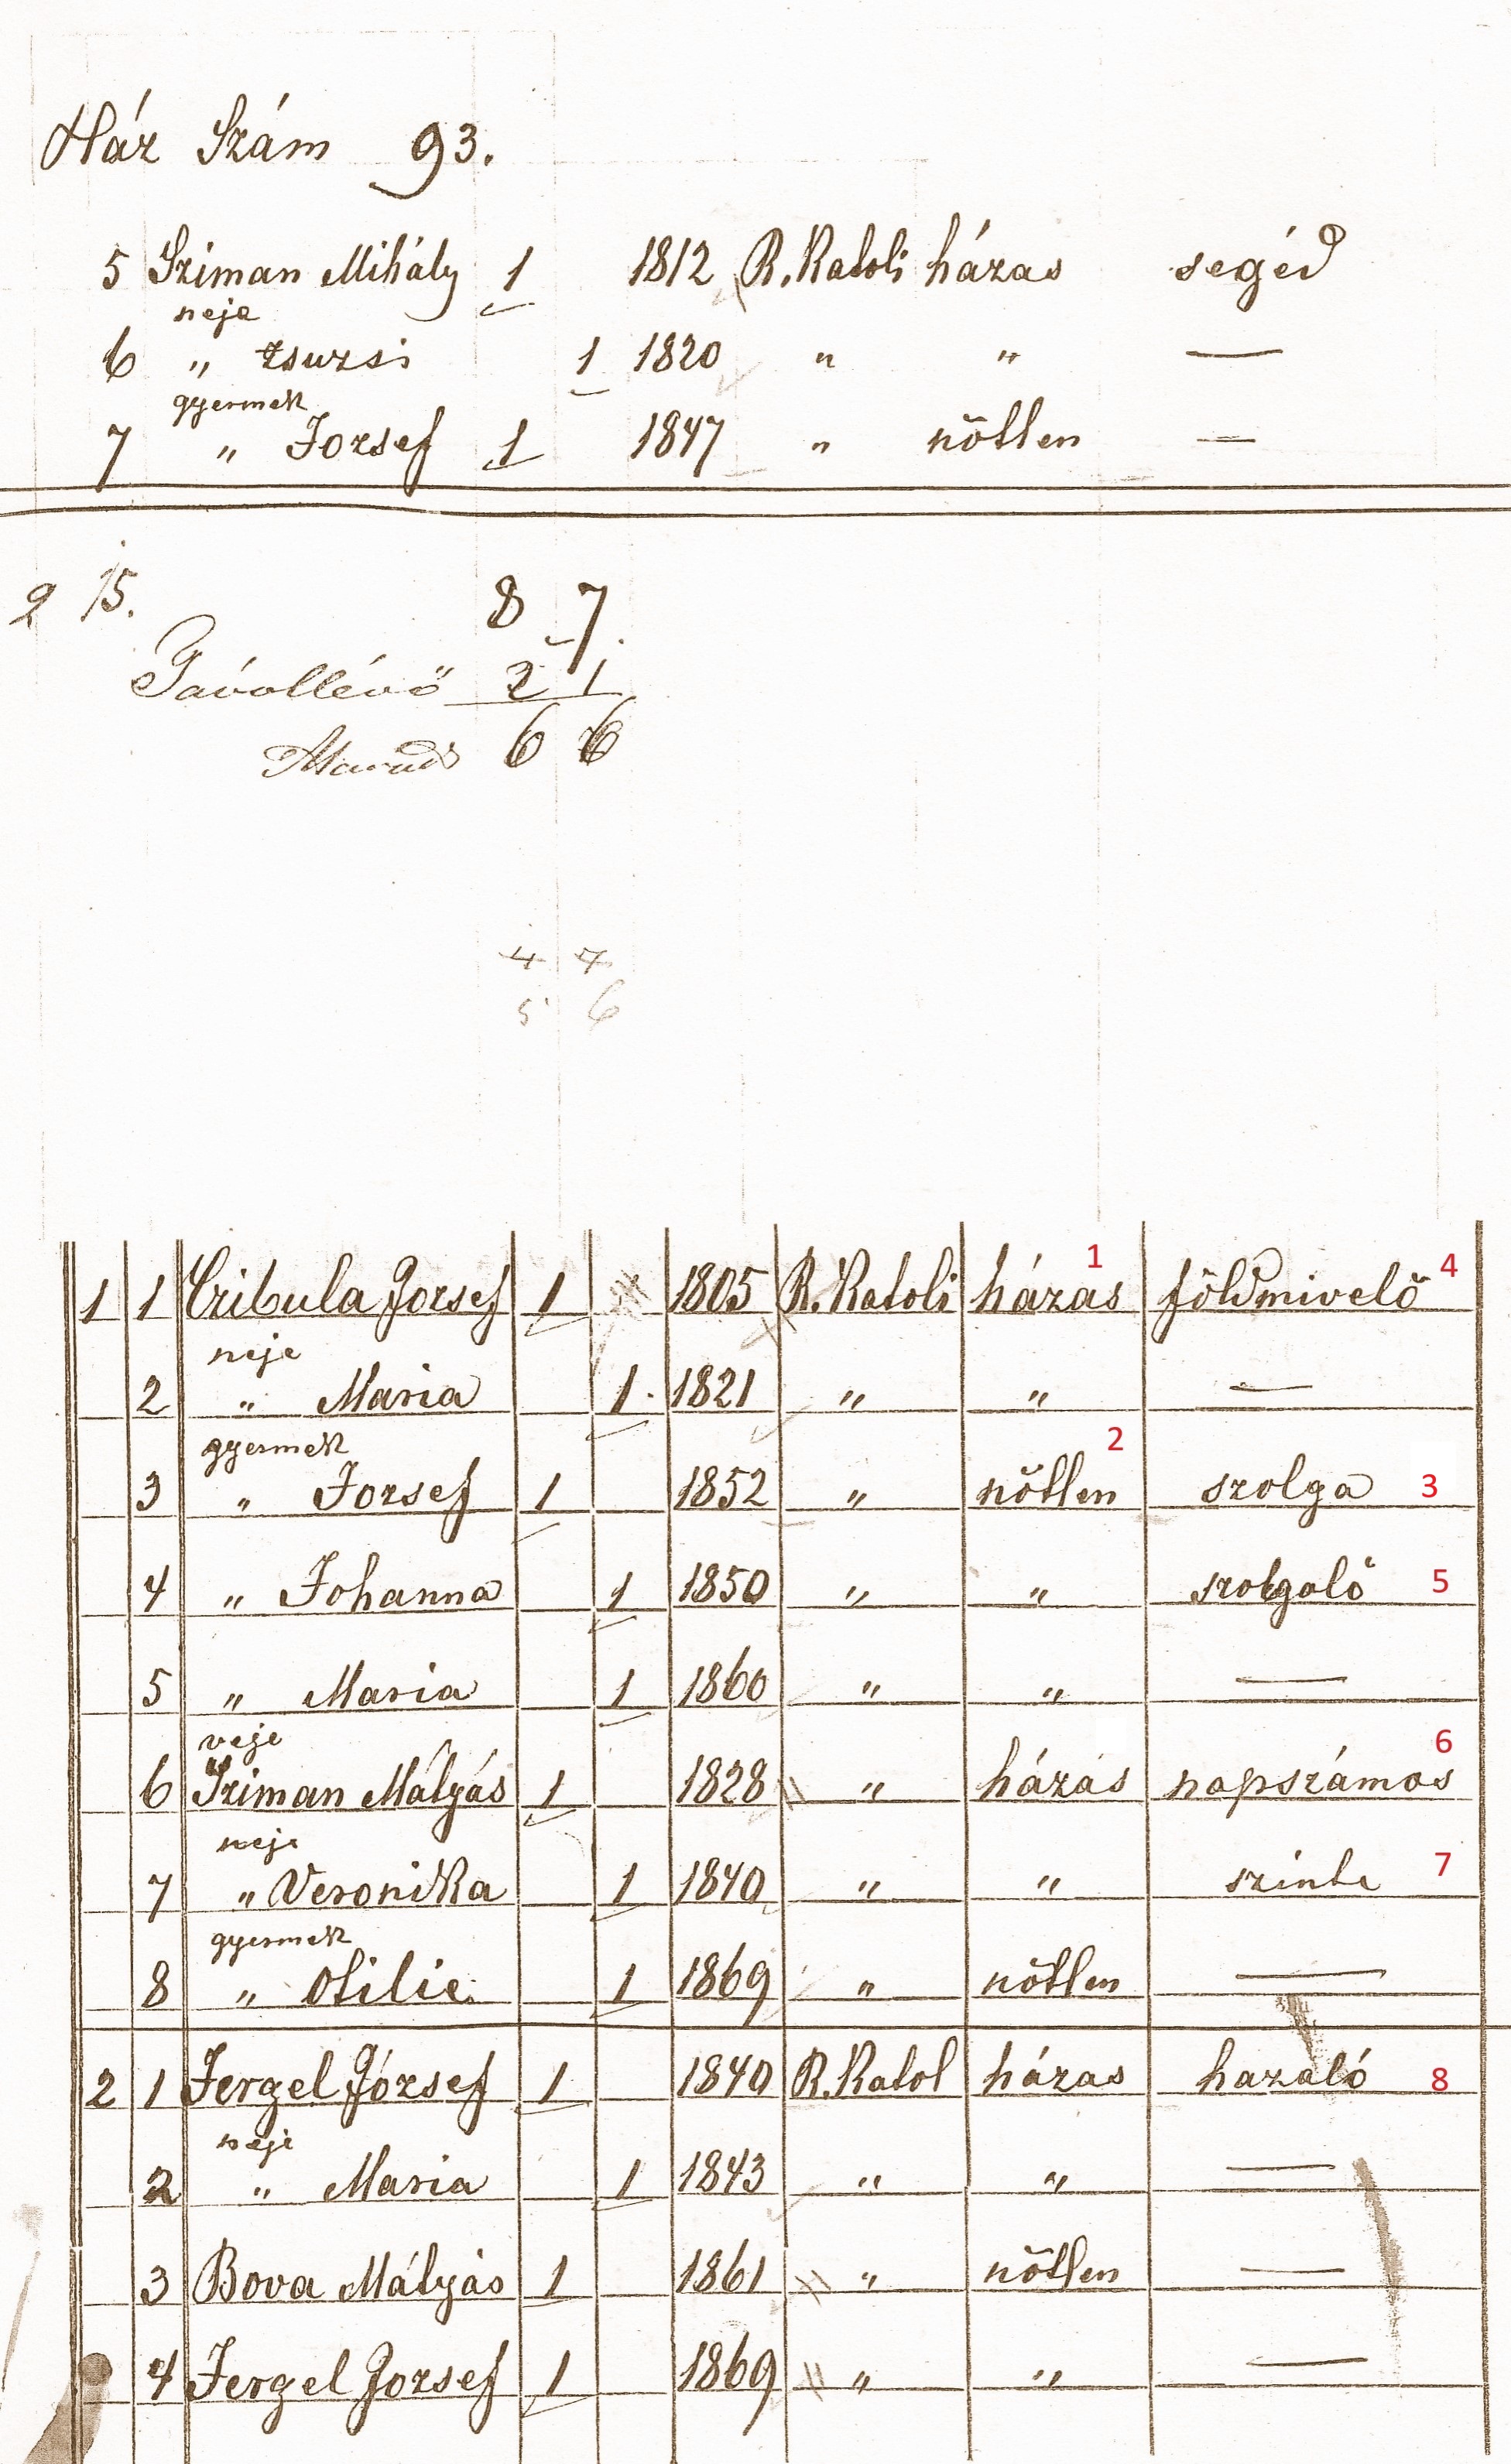 Ház Szám 93.
5 Sziman Mihály 1 1812 R. Katoli házas segéd
neje
6 " zsuzsi 1 1820 " " —
gyermek
7 " Jozsef 1 1847 " nőtlen —
2 15. 8 7.
Távollévő 2 1
Marad 6 6
4 7
5 6
1
4
1 1 Czibula Jozsef 1 1805 R. Katoli házas földmivelő
neje
2 " Maria 1. 1821 " " —
gyermek 2
3 " Jozsef 1 1852 " nőtlen szolga 3
4 " Johanna 1 1850 " " szolgaló 5
5 " Maria 1 1860 " " —
veje 6
6 Sziman Mátyás 1 1828 " házas napszámos
neje
7 " Veronika 1 1840 " " szinte 7
gyermek
8 " Otilie. 1 1869 " nőtlen —
2 1 Fergel József 1 1840 R. Katol házas hazaló 8
neje
2 " Maria 1 1843 " " —
3 Bova Mátyás 1 1861 " nőtlen —
4 Fergel Jozsef 1 1869 " " —